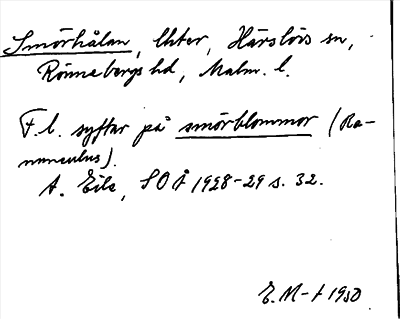 Smörhålan, åker, Härslövs sn,
Rönnebergs hd, Malm. l.
F. l. syftar på smörblommor (Ra-
nunculus).
A. Eile, SOÅ 1928-29 s. 32.
E. M-t 1930